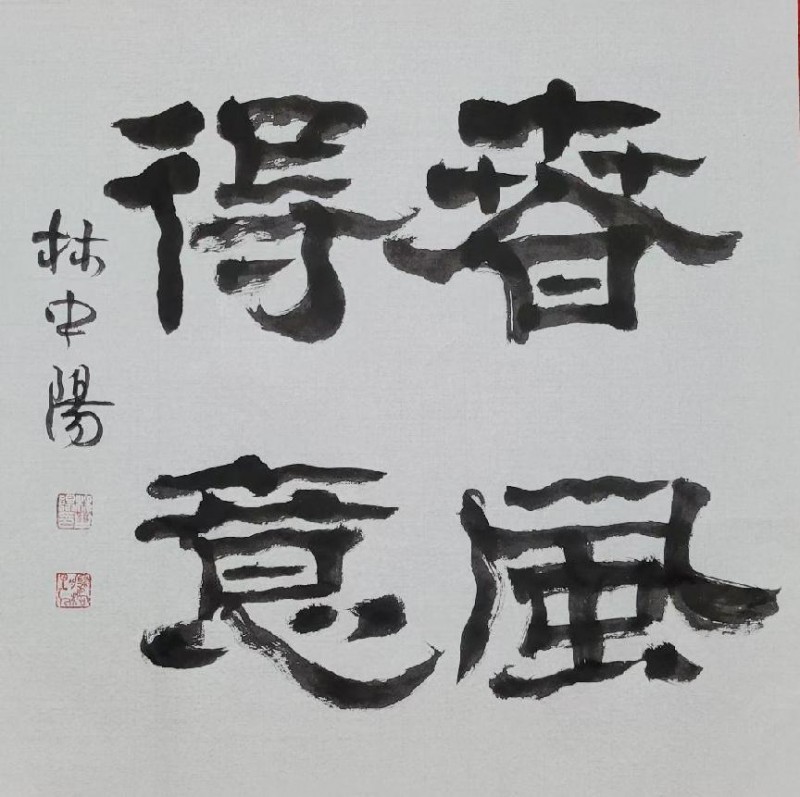 春風
得意
林中陽